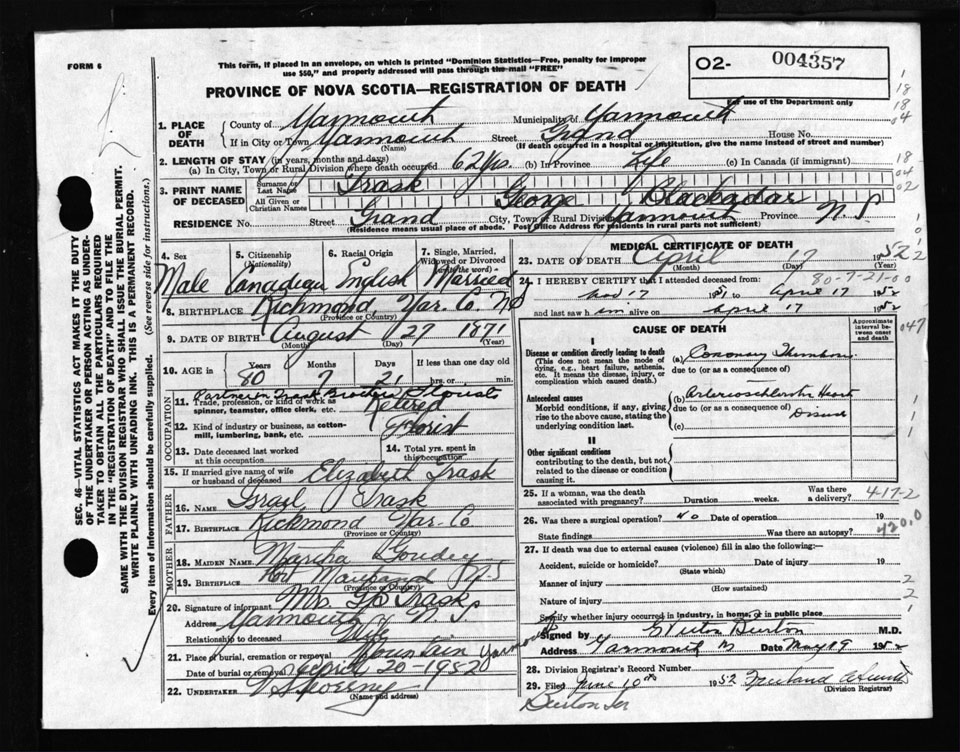 FORM 6
This form, if placed in an envelope, on which is printed "Dominion Statistics—Free, penalty for improper
use $50," and properly addressed will pass through the mail "FREE"
02- 004357
For use of the Department only
PROVINCE OF NOVA SCOTIA—REGISTRATION OF DEATH
1. PLACE OF DEATH
County of Yarmouth Municipality of Yarmouth
If in City or Town Yarmouth Street Grand House No.
(Name) (If death occurred in a hospital or institution, give the name instead of street and number)
2. LENGTH OF STAY (in years, months and days)
(a) In City, Town or Rural Division where death occurred 62 yrs. (b) In Province Life (c) In Canada (if immigrant)
3. PRINT NAME OF DECEASED
Surname or Last Name Trask
All Given or Christian Names George Blackadar
RESIDENCE No. Street Grand City, Town or Rural Division Yarmouth Province N.S.
(Residence means usual place of abode. Post Office Address for residents in rural parts not sufficient)
4. Sex Male
5. Citizenship (Nationality) Canadian
6. Racial Origin English
7. Single, Married, Widowed or Divorced (write the word) Married
8. BIRTHPLACE Richmond Yar. Co. NS
(Province or Country)
9. DATE OF BIRTH August 27 1871
(Month) (Day) (Year)
10. AGE in Years 80 Months 7 Days 21 If less than one day
hrs. or min.
OCCUPATION
Partner in Trask Brothers Florists
11. Trade, profession, or kind of work as spinner, teamster, office clerk, etc. Retired
12. Kind of industry or business, as cotton-mill, lumbering, bank, etc. Florist
13. Date deceased last worked at this occupation
14. Total yrs. spent in this occupation
15. If married give name of wife or husband of deceased Elizabeth Trask
FATHER
16. NAME Israel Trask
17. BIRTHPLACE Richmond Yar. Co.
(Province or Country)
MOTHER
18. MAIDEN NAME Martha Goudey
19. BIRTHPLACE Port Maitland N.S
(Province or Country)
20. Signature of informant Mrs. Trask
Address Yarmouth N.S
Relationship to deceased Wife
21. Place of burial, cremation or removal Mountain
Date of burial or removal April 20-1952
22. UNDERTAKER
(Name and address)
MEDICAL CERTIFICATE OF DEATH
23. DATE OF DEATH April 17 1952
(Month) (Day) (Year)
24. I HEREBY CERTIFY that I attended deceased from: 80-7-21-0-0
Nov 17 1951 to April 17 1952
and last saw him alive on April 17 1952
CAUSE OF DEATH
Approximate interval between onset and death
I
Disease or condition directly leading to death
(This does not mean the mode of dying, e.g., heart failure, asthenia, etc. It means the disease, injury, or complication which caused death.)
(a) Coronary Thrombosis
due to (or as a consequence of)
Antecedent causes
Morbid conditions, if any, giving rise to the above cause, stating the underlying condition last.
(b) Arteriosclerotic Heart
due to (or as a consequence of) Disease
(c)
II
Other significant conditions
contributing to the death, but not related to the disease or condition causing it.
25. If a woman, was the death associated with pregnancy? Duration weeks. Was there a delivery? 4-17-2
26. Was there a surgical operation? No Date of operation 19
State findings Was there an autopsy? 420.0
27. If death was due to external causes (violence) fill in also the following:—
Accident, suicide or homicide? Date of injury 19
(State which)
Manner of injury
(How sustained)
Nature of injury
Specify whether injury occurred in industry, in home, or in public place
Signed by Burton M.D.
Address Yarmouth Date May 29 1952
28. Division Registrar's Record Number
29. Filed June 10th 1952
(Division Registrar)
SEC. 46—VITAL STATISTICS ACT MAKES IT THE DUTY
OF THE UNDERTAKER OR PERSON ACTING AS UNDER-
TAKER TO OBTAIN ALL THE PARTICULARS REQUIRED
IN THE "REGISTRATION OF DEATH" AND TO FILE THE
SAME WITH THE DIVISION REGISTRAR WHO SHALL ISSUE THE BURIAL PERMIT.
WRITE PLAINLY WITH UNFADING INK. THIS IS A PERMANENT RECORD.
Every item of information should be carefully supplied. (See reverse side for instructions.)